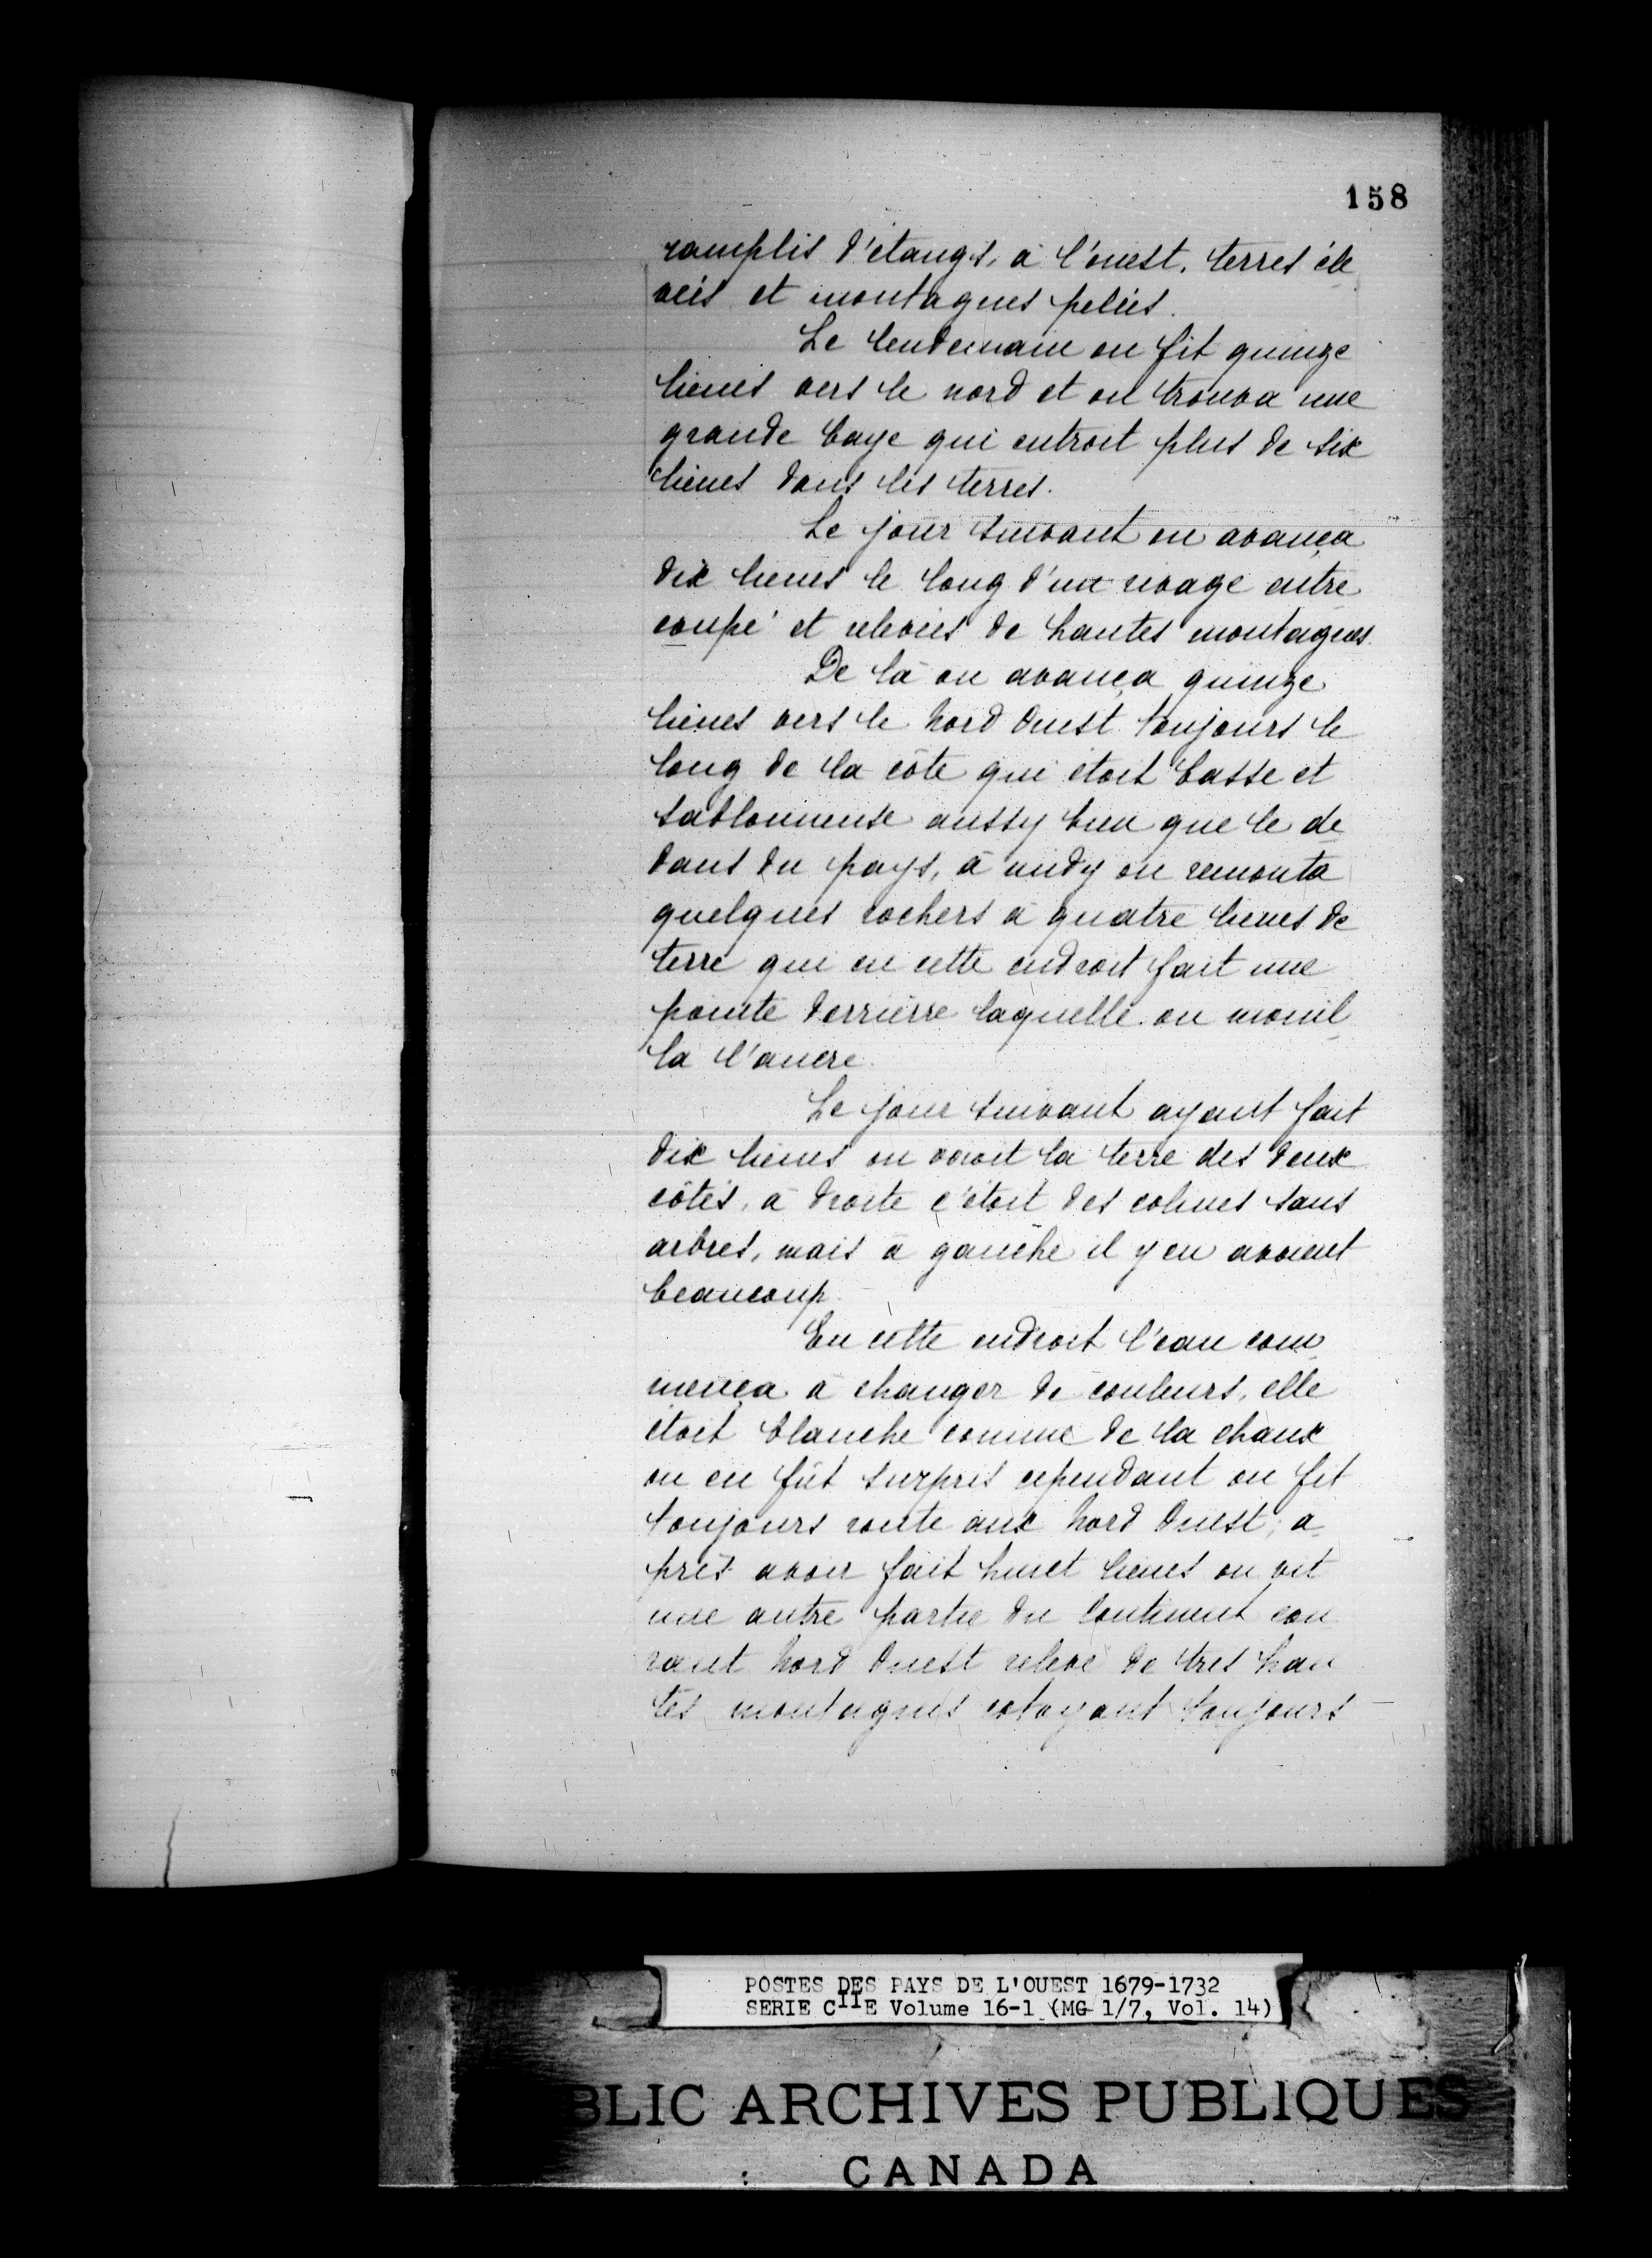 158
ramplis d'étangs, à l'ouest, terres éle
véés et montagnes pelées.
Le lendemain on fit quinze
lieues vers le nord et on trouva une
grande baye qui entroit plus de six
lieues dans les terres.
Le jour suivant on avança
dix lieues le long d'un rivage entre
coupé et relevées de hautes montagnes
De là on avança quinze
lieues vers le Nord Ouest toujours le
long de la côte qui étoit basse et
sablonneuse aussy bien que le de
dans du pays, à midy on remonta
quelques rochers à quatre lieues de
terre qui en cette endroit fait une
pointe derrierre laquelle on mouil
la l'ancre.
Le jour suivant ayant fait
dix lieues on voioit la terre des deux
côtés, à droite c'étoit des colines sans
arbres, mais à gauche il y en avoient
beaucoup.
En cette endroit l'eau com
mença à changer de couleurs, elle
étoit blanche comme de la chaux
on en fût surpris cependant on fit
toujours route aux Nord Ouest; a
près avoir fait huict lieues on vit
une autre partie du Continent cou
rant Nord Ouest relevé de tres hau
tes montagnes cotoyant toujours
POSTES DES PAYS DE L'OUEST 1679-1732
SERIE CIIE Volume 16-1 (MG 1/7, Vol. 14)
BLIC ARCHIVES PUBLIQUES
CANADA